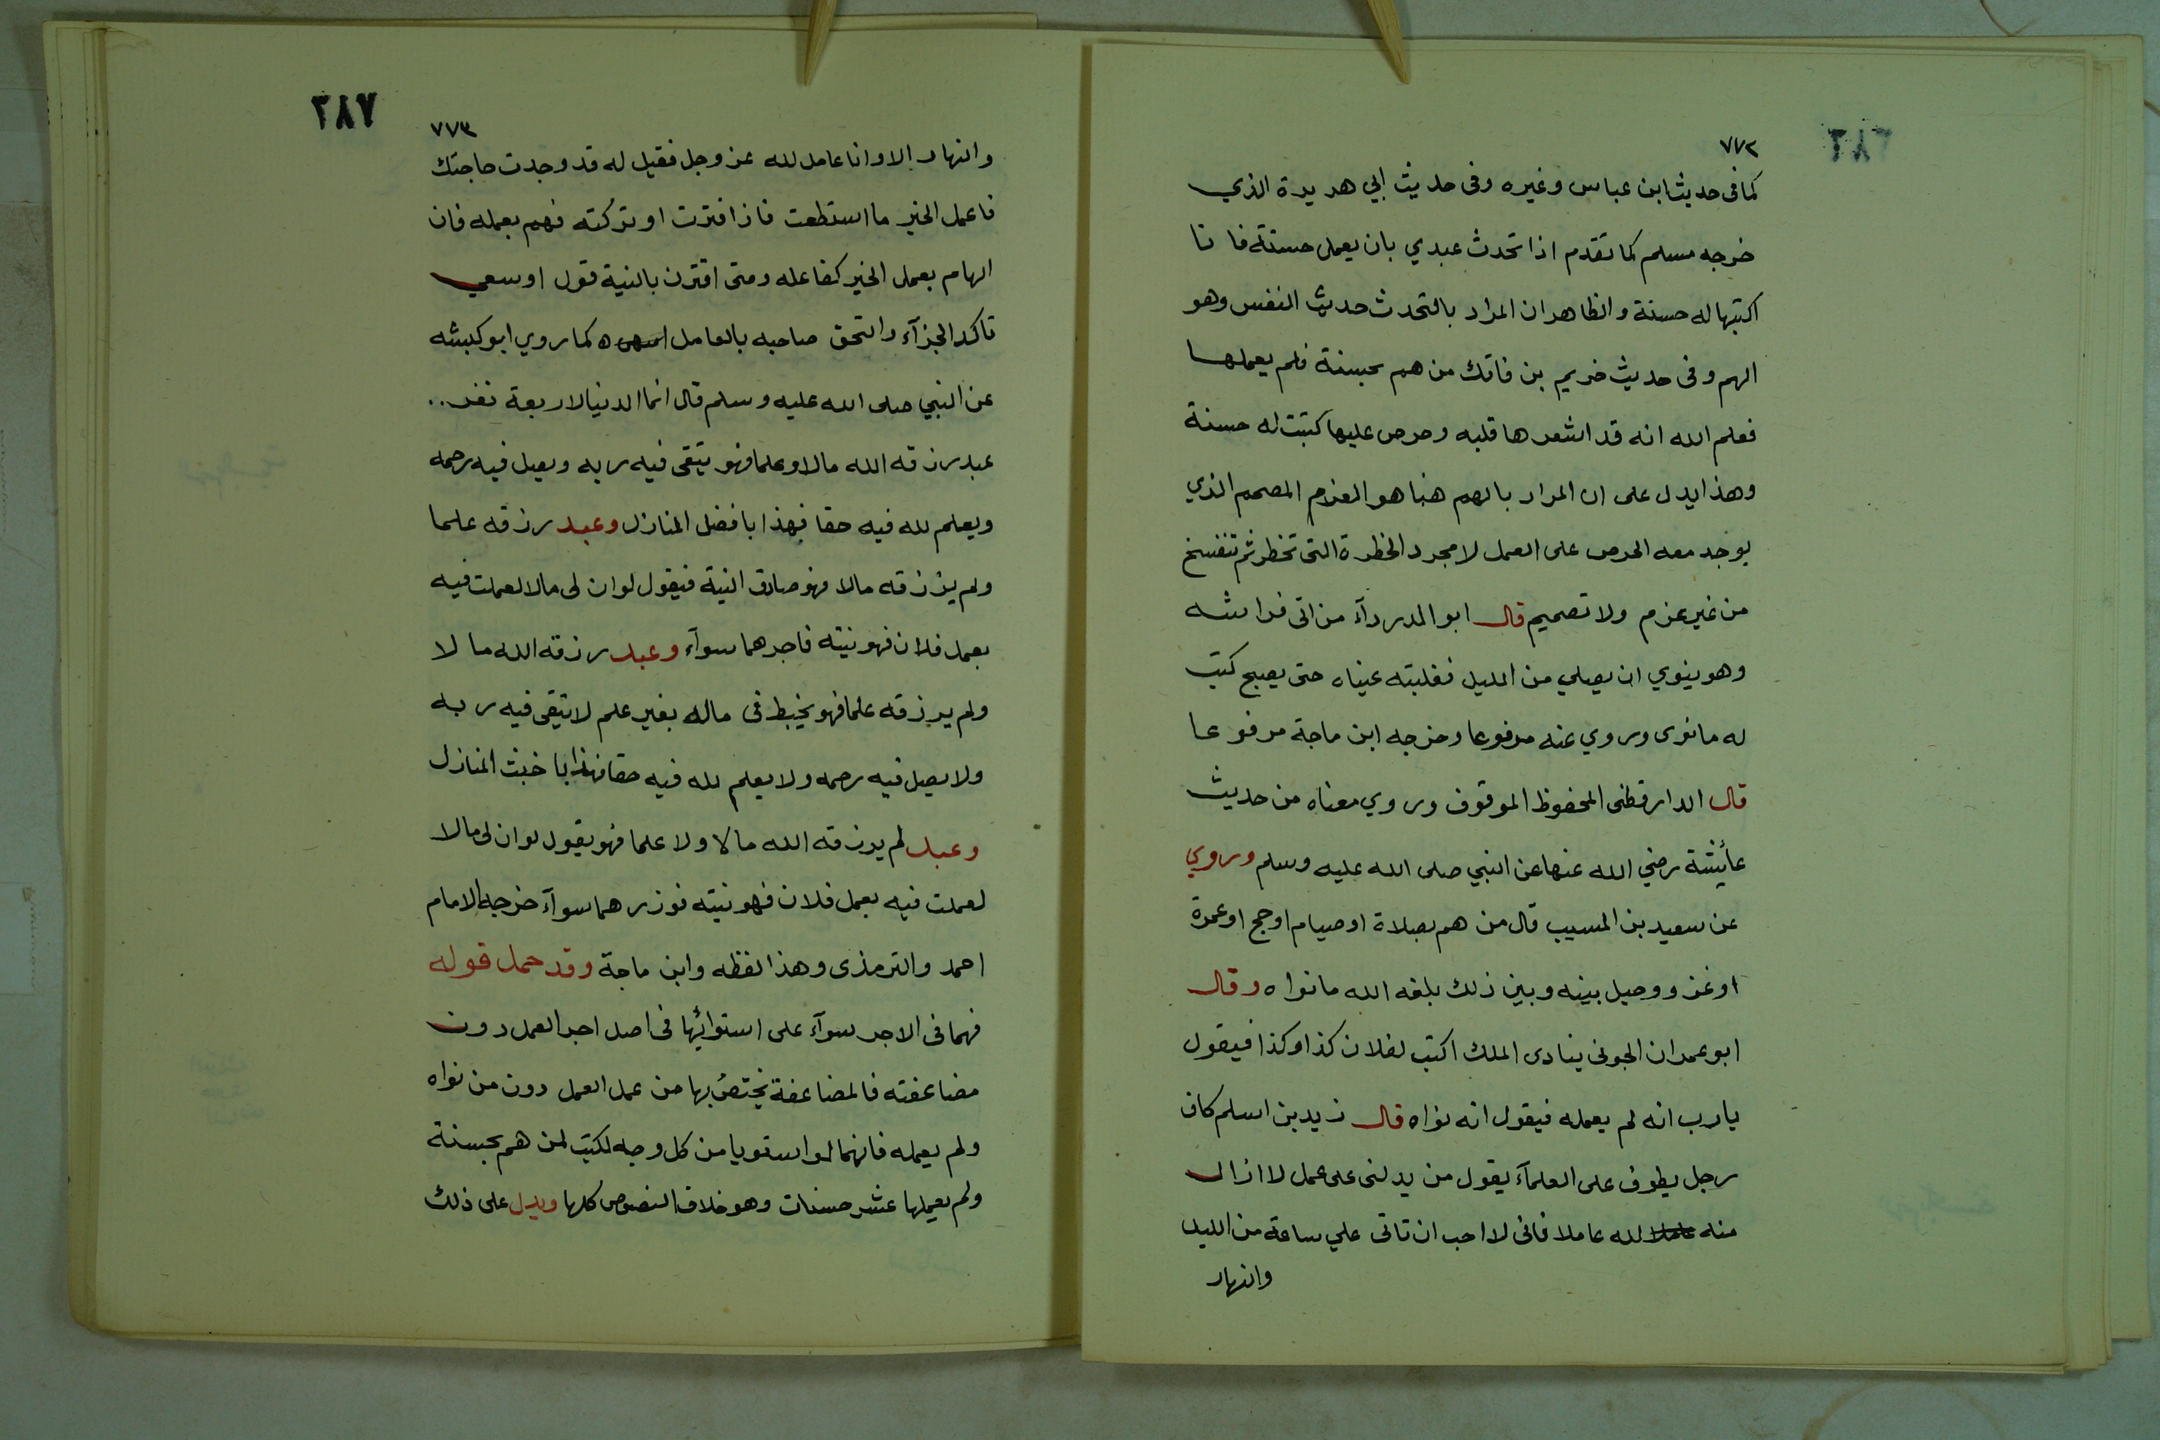 ٧٧٢
كما فى حديث ابن عباس وغيره وفى حديث ابي هريرة الذي
خرجه مسلم كما تقدم اذا تحدث عبدي بان يعمل حسنة فانا
اكتبها له حسنة والظاهر ان المراد بالتحدث حديث النفس وهو
الهم وفى حديث خريم بن فاتك من هم بحسنة فلم يعملها
فعلم الله انه قد اشعرها قلبه وحرص عليها كتبت له حسنة
وهذا يدل على ان المراد بالهم هنا هو العزم المصمم الذي
يوجد معه الحرص على العمل لا مجرد الخطرة التى تخطر ثم تنفسخ
من غير عزم ولا تصميم قال ابو الدردآء من اتى فراشه
وهو ينوي ان يصلي من الليل فغلبته عيناه حتى يصبح كتب
له ما نوى وروي عنه مرفوعا وخرجه ابن ماجة مرفوعا
قال الدارقطنى المحفوظ الموقوف وروي معناه من حديث
عائشة رضي الله عنها عن النبي صلى الله عليه وسلم وروي
عن سعيد بن المسيب قال من هم بصلاة او صيام او حج او عمرة
او غزو وحيل بينه وبين ذلك بلغه الله ما نواه وقال
ابو عمران الجونى ينادى الملك اكتب لفلان كذا وكذا فيقول
يا رب انه لم يعمله فيقول انه نواه قال زيد بن اسلم كان
رجل يطوف على العلمآء يقول من يدلنى على عمل لا ازال
منه لله عاملا فانى لا احب ان تاتى علي ساعة من الليل
والنهار
٣٨٧
٧٧٣
والنهار الا وانا عامل لله عز وجل فقيل له قد وجدت حاجتك
فاعمل الخير ما استطعت فاذا فترت او تركته فهم بعمله فان
الهام بعمل الخير كفاعله ومتى اقترن بالنية قول او سعي
تاكد الجزآء والتحق صاحبه بالعامل كما روي ابو كبشه
عن النبي صلى الله عليه وسلم قال انما الدنيا لاربعة نفر..
عبد رزقه الله مالا وعلما فهو يتقى فيه ربه ويصل فيه رحمه
ويعلم لله فيه حقا فهذا بافضل المنازل وعبد رزقه علما
ولم يرزقه مالا فهو صادق النية فيقول لو ان لى مالا لعملت فيه
بعمل فلان فهو نيته فاجرهما سوآء وعبد رزقه الله مالا
ولم يرزقه علما فهو يخبط فى ماله بغير علم لا يتقى فيه ربه
ولا يصل فيه رحمه ولا يعلم لله فيه حقا فهذا باخبث المنازل
وعبد لم يرزقه الله مالا ولا علما فهو يقول لو ان لى مالا
لعملت فيه بعمل فلان فهو نيته فوزرهما سوآء خرجه الامام
احمد والترمذى وهذا لفظه وابن ماجة وقد حمل قوله
فهما فى الاجر سوآء على استوائها فى اصل اجر العمل دون
مضاعفته فالمضاعفة يختص بها من عمل العمل دون من نواه
ولم يعمله فانهما لو استويا من كل وجه لكتب لمن هم بحسنة
ولم يعملها عشر حسنات وهو خلاف النصوص كلها ويدل على ذلك